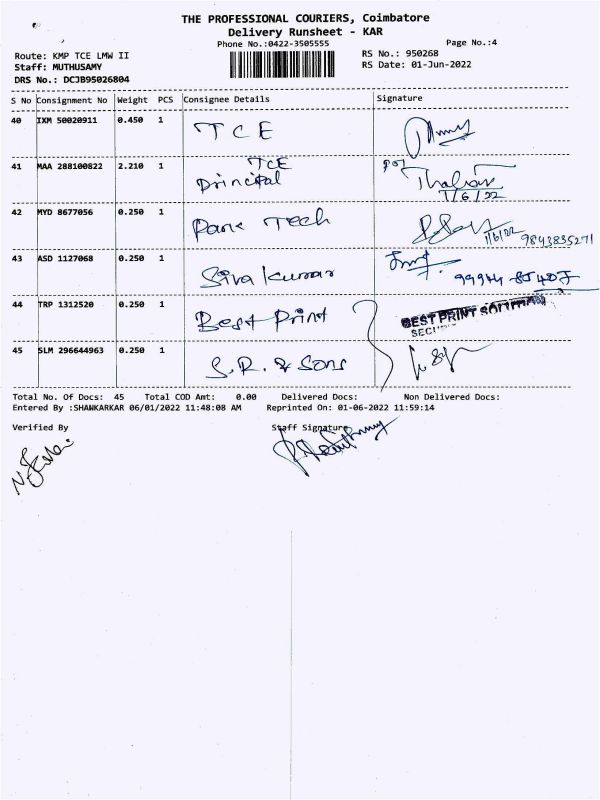 THE PROFESSIONAL COURIERS, Coimbatore
Delivery Runsheet - KAR
Phone No.:0422-3505555
Page No.:4
Route: KMP TCE LMW II
RS No.: 950268
Staff: MUTHUSAMY
RS Date: 01-Jun-2022
DRS No.: DCJB95026804
S No Consignment No Weight PCS Consignee Details Signature
40 IXM 50020911 0.450 1 TCE
41 MAA 288100822 2.210 1 TCE Principal
1/6/22
42 MYD 8677056 0.250 1 Park Tech 1/6/22 9843835271
43 ASD 1127068 0.250 1 Siva Kumar 99944
44 TRP 1312520 0.250 1 Best Print BEST PRINT
45 SLM 296644963 0.250 1 S.R. & Sons
Total No. Of Docs: 45 Total COD Amt: 0.00 Delivered Docs: Non Delivered Docs:
Entered By :SHANKARKAR 06/01/2022 11:48:08 AM Reprinted On: 01-06-2022 11:59:14
Verified By Staff Signature